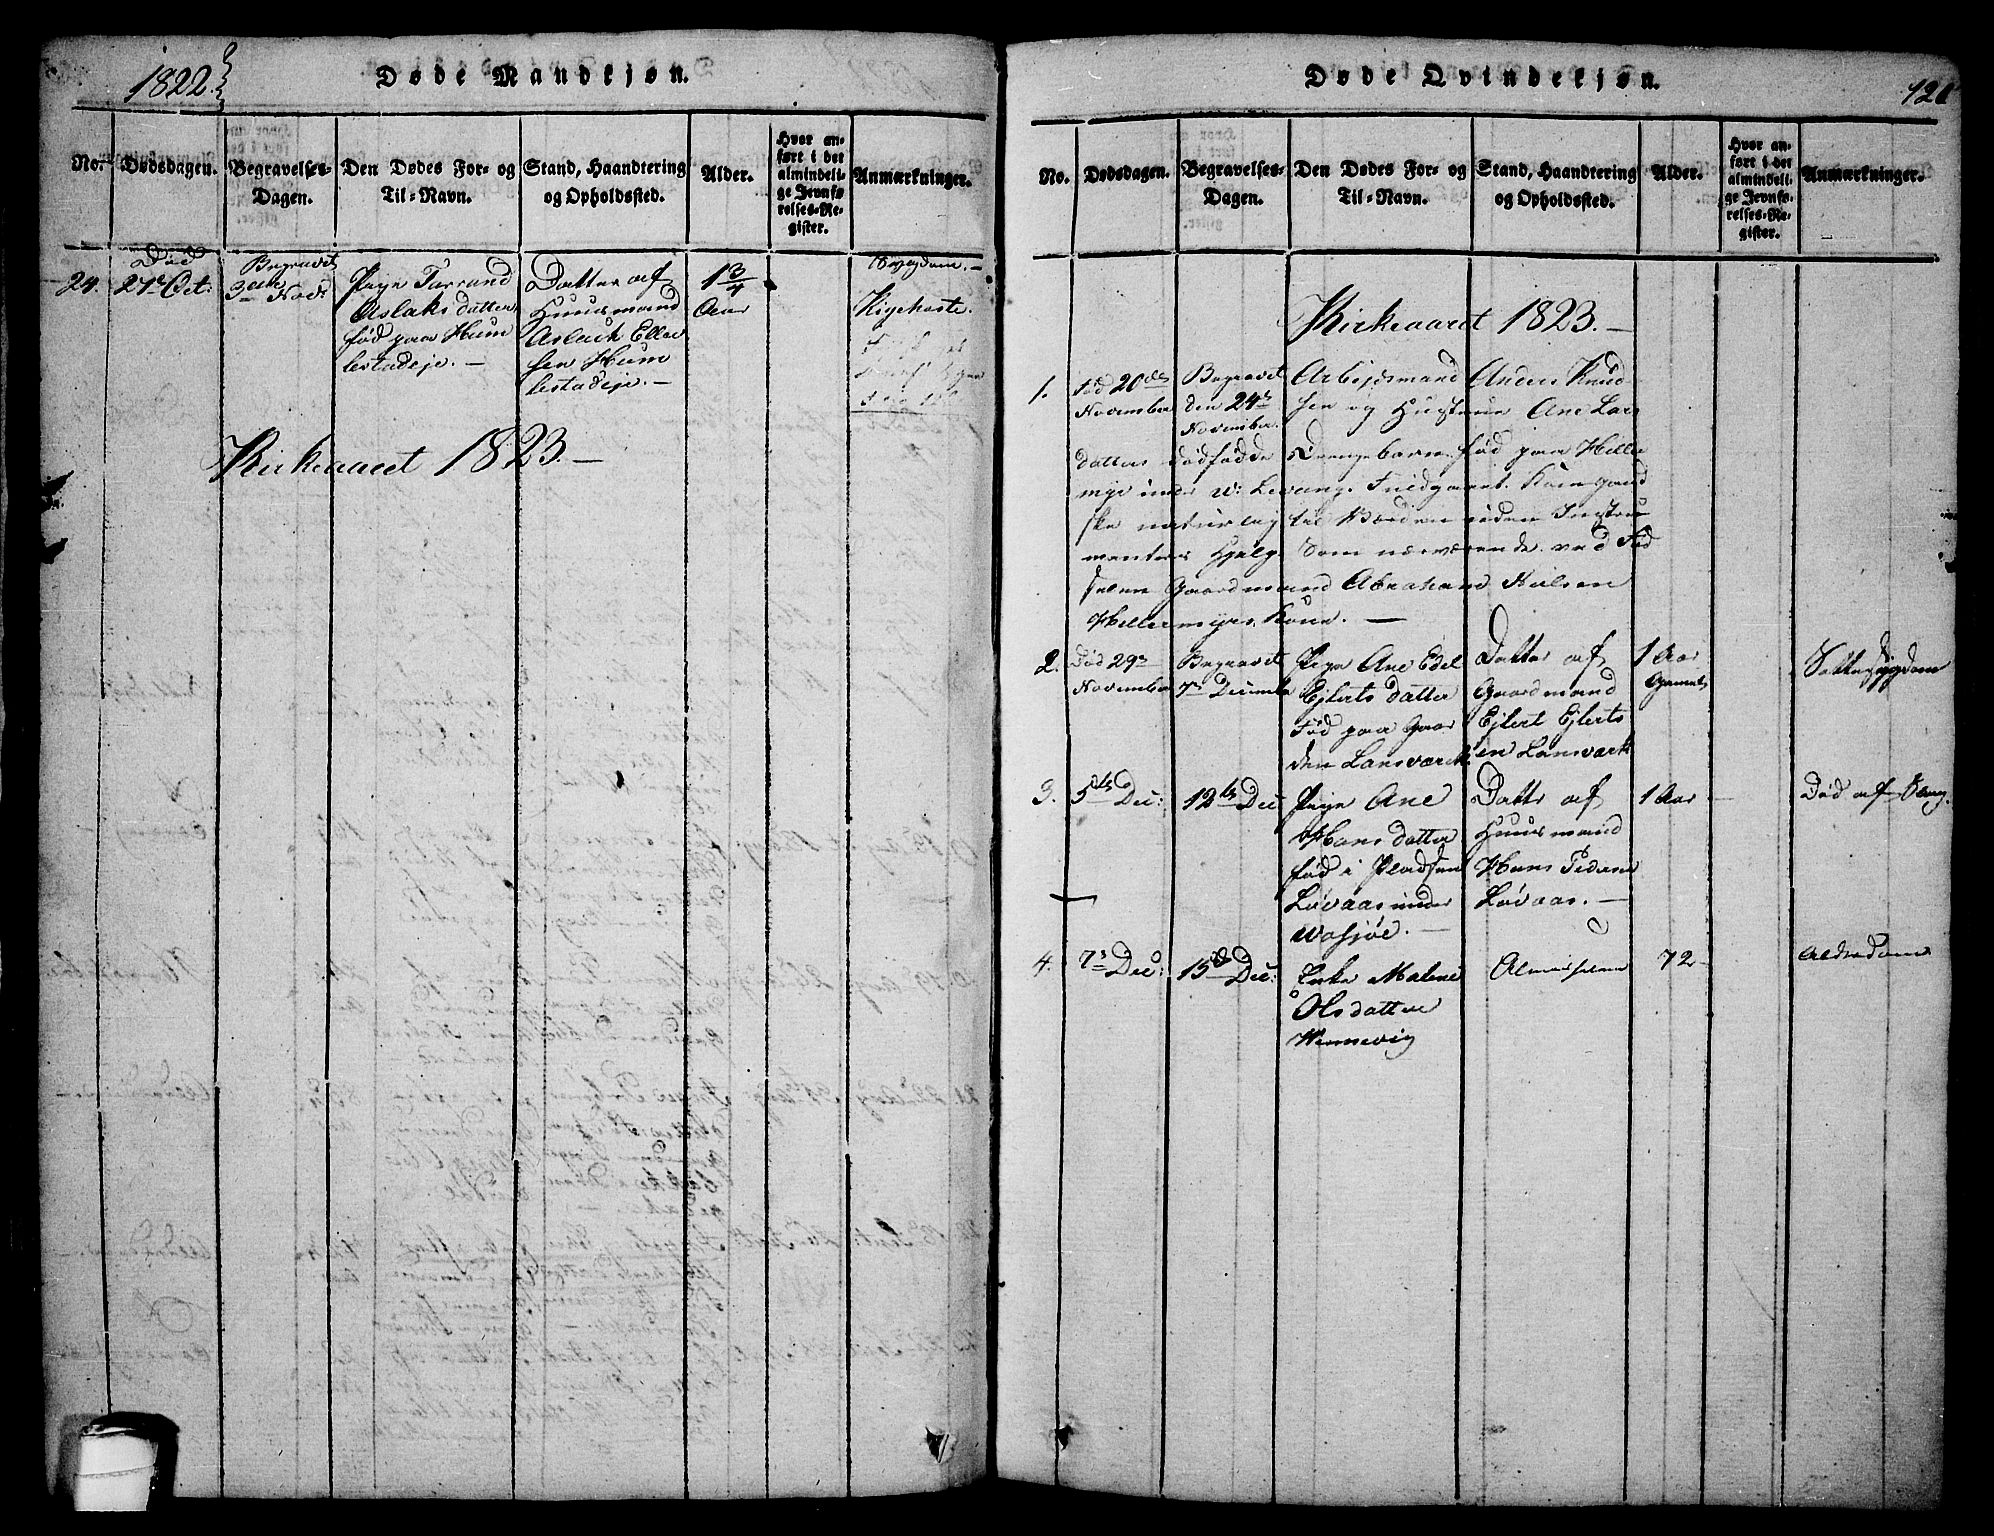 1822.
Døde Mandkjøn.
No.
Dødsdagen.
Begravelses-
Dagen.
Den Dødes For- og
Til-Navn.
Stand, Haandtering
og Opholdssted.
Alder.
Hvor an-
ført i det
almindeli-
ge Jevnfø-
relses-Re-
gister.
Anmærkninger.
24.
Død
27de Oct:
Begravet
3die Nov:
Pige
Aslaks datter
fød paa Hum
lestadeje. –
Datter af
Huusmand
Aslach
sen Hum
lestadeje. –
1 3/4
Aar
Sygdom. –
Kigehoste.
Kirkeaaret 1823. –
Døde Qvindekjøn.
121
No.
Dødsdagen.
Begravelses-
Dagen.
Den Dødes For- og
Til-Navn.
Stand, Haandtering
og Opholdssted.
Alder.
Hvor an-
ført i det
almindeli-
ge Jevnfø-
relses-Re-
gister.
Anmærkninger.
Kirkeaaret 1823. –
1.
Fød 20de
November
Begravet
den 24de
November.
Arbejdsmand Anders Knud
sen og Hustrue Ane Lars
datters dødfødde Drengebarn fød paa Heller
myr under
ske naturlig til Verden uden Instru
menters Hjelp. Som nærværende ved Fød
selen Gaardmand Abraham Nielsen
Hellermyrs Kone. –
2.
Død 29de
November
Begravet
7de Decembr
Pige Ane Edel
Ejlerts datter
Fød paa Gaar
den Lansværk
Datter af
Gaardmand
Ejlert Ejlerts
en Lansværk
1 Aar
Gammel
Sottesygdom
3.
5te Dec:
12te Dec
Pige Ane
Hans datter
fød i Pladsen
Løvaas under
Datter af
Huusmand
Hans Pedersen
Løvaas. –
1 Aar
Død af
4.
7de Dec:
15de Dec:
Enke Malene
Olsdatter
Wennevig
Almisselem
72
Alderdom